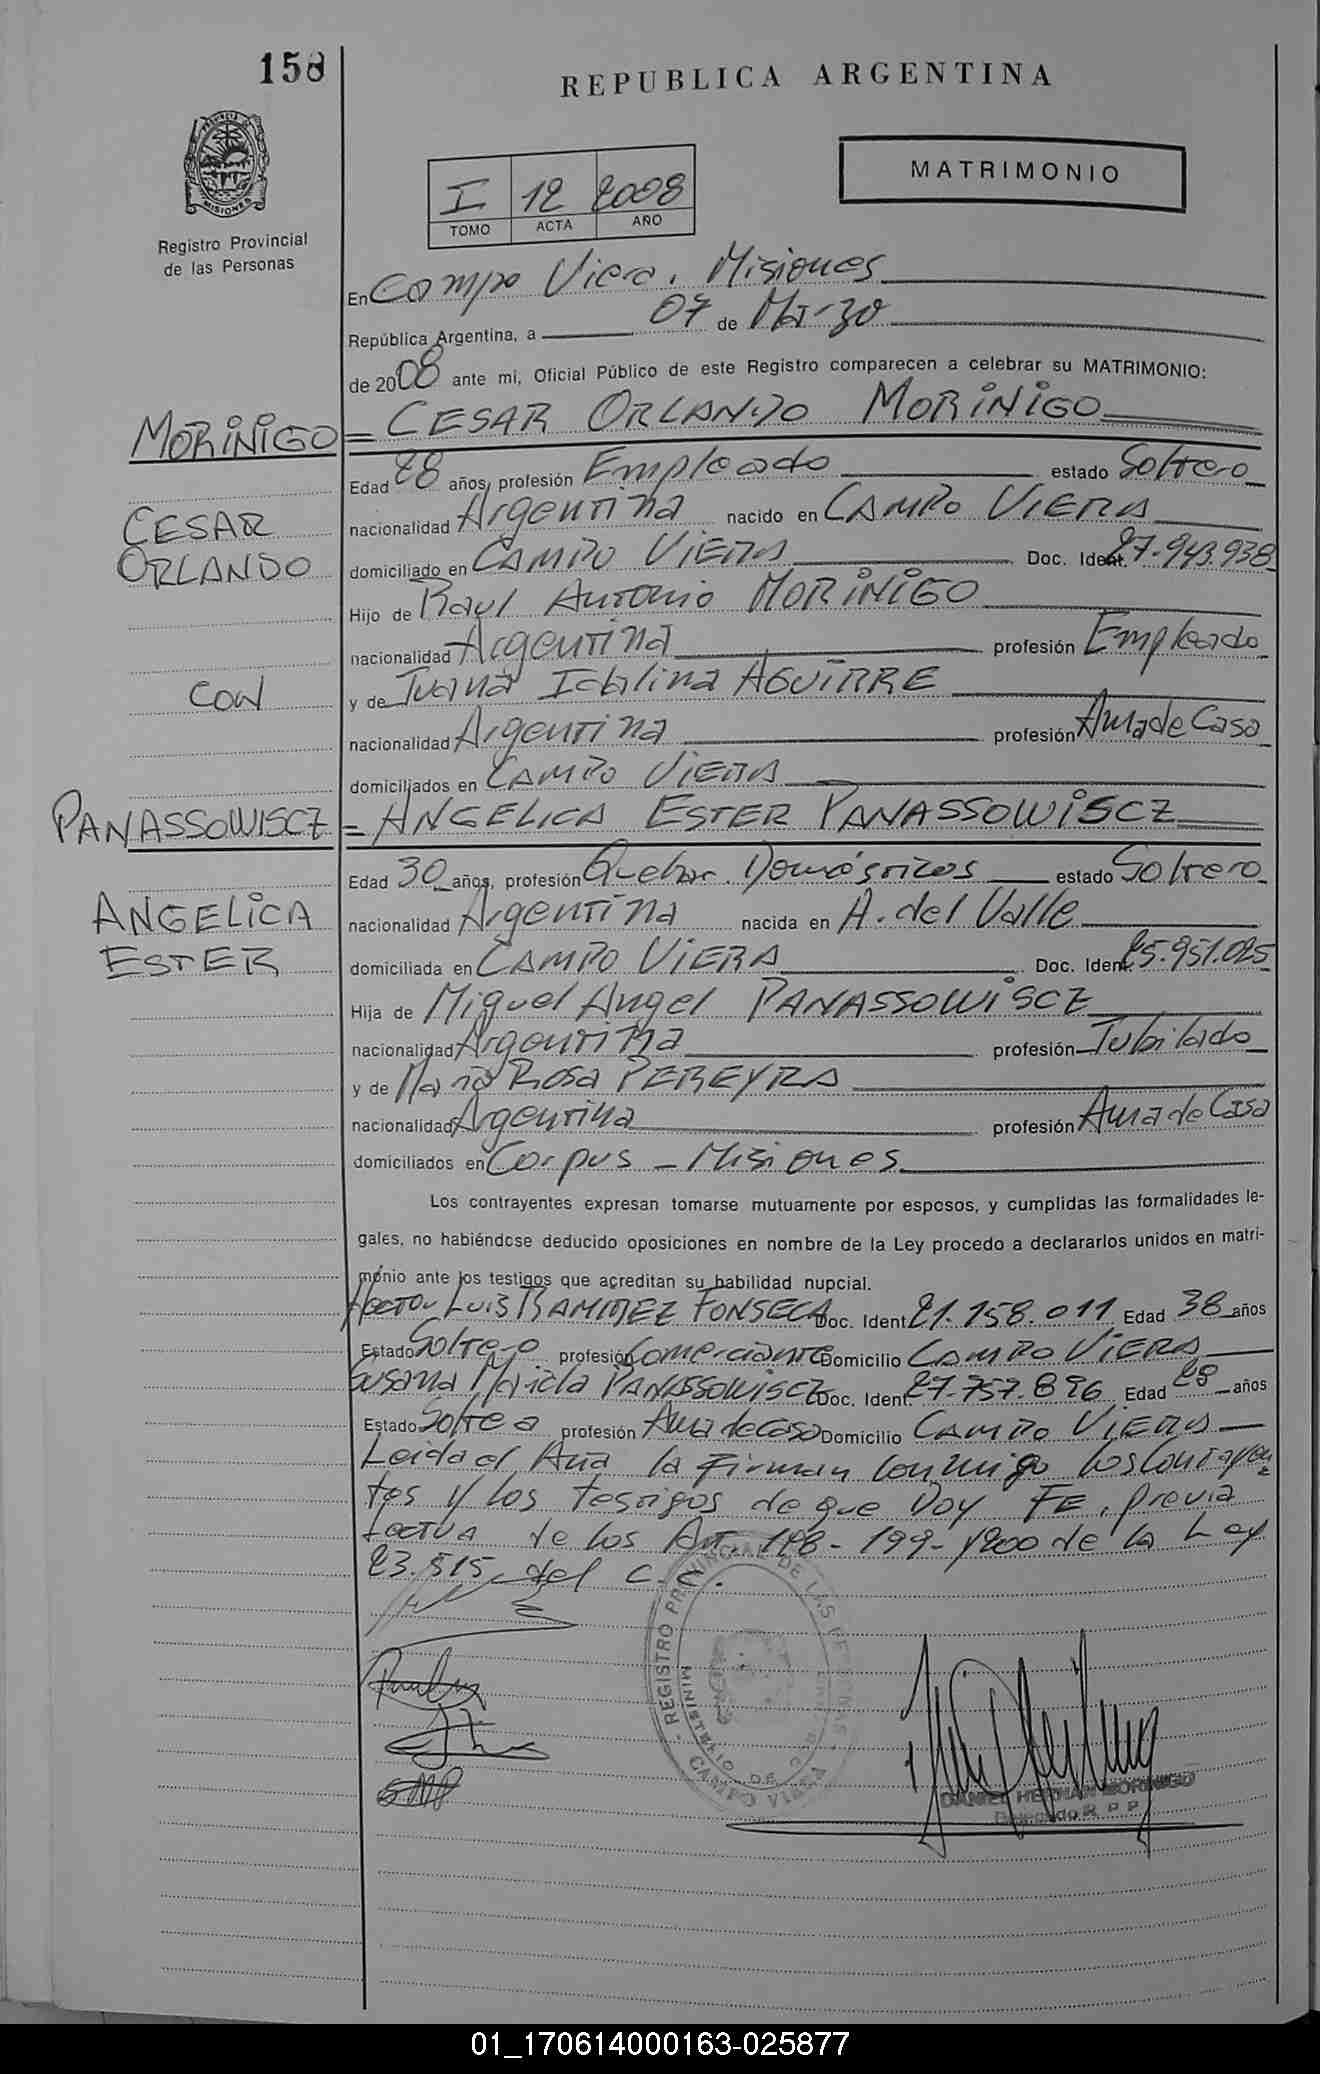 158
REPUBLICA ARGENTINA
PROVINCIA DE MISIONES
Registro Provincial
de las Personas
I 12 2008
TOMO ACTA AÑO
MATRIMONIO
En Campo Viera, Misiones
República Argentina, a 07 de Marzo
de 2008 ante mi, Oficial Público de este Registro comparecen a celebrar su MATRIMONIO:
MORINIGO = CESAR ORLANDO MORINIGO
Edad 28 años, profesión Empleado estado Soltero
CESAR nacionalidad Argentina nacido en CAMPO VIERA
ORLANDO domiciliado en CAMPO VIERA Doc. Ident. 27.943.938
Hijo de Raul Antonio MORINIGO
nacionalidad Argentina profesión Empleado
CON y de Juana Idalina AGUIRRE
nacionalidad Argentina profesión Ama de Casa
domiciliados en CAMPO VIERA
PANASSOWISCZ = ANGELICA ESTER PANASSOWISCZ
Edad 30 años, profesión Quehac. Domésticos estado Soltero
ANGELICA nacionalidad Argentina nacida en A. del Valle
ESTER domiciliada en CAMPO VIERA Doc. Ident. 25.951.025
Hija de Miguel Angel PANASSOWISCZ
nacionalidad Argentina profesión Jubilado
y de Maria Rosa PEREYRA
nacionalidad Argentina profesión Ama de Casa
domiciliados en Corpus - Misiones
Los contrayentes expresan tomarse mutuamente por esposos, y cumplidas las formalidades le-
gales, no habiéndose deducido oposiciones en nombre de la Ley procedo a declararlos unidos en matri-
monio ante los testigos que acreditan su habilidad nupcial.
Hector Luis RAMIREZ FONSECA Doc. Ident. 21.158.011 Edad 38 años
Estado Soltero profesión Comerciante Domicilio CAMPO VIERA
Susana Mariela PANASSOWISCZ Doc. Ident. 27.757.896 Edad 28 años
Estado Soltea profesión Ama de Casa Domicilio CAMPO VIERA
Leida el Acta la firman conmigo los Contrayen
tes y los testigos de que Doy FE, previa
lectua de los Art. 198-199-y200 de la Ley
23.515 del C.C.
REGISTRO PROVINCIAL DE LAS PERSONAS
MINISTERIO DE
CAMPO VIERA
DANIEL HERNAN MORINIGO
Delegado R.P.P.
01_170614000163-025877